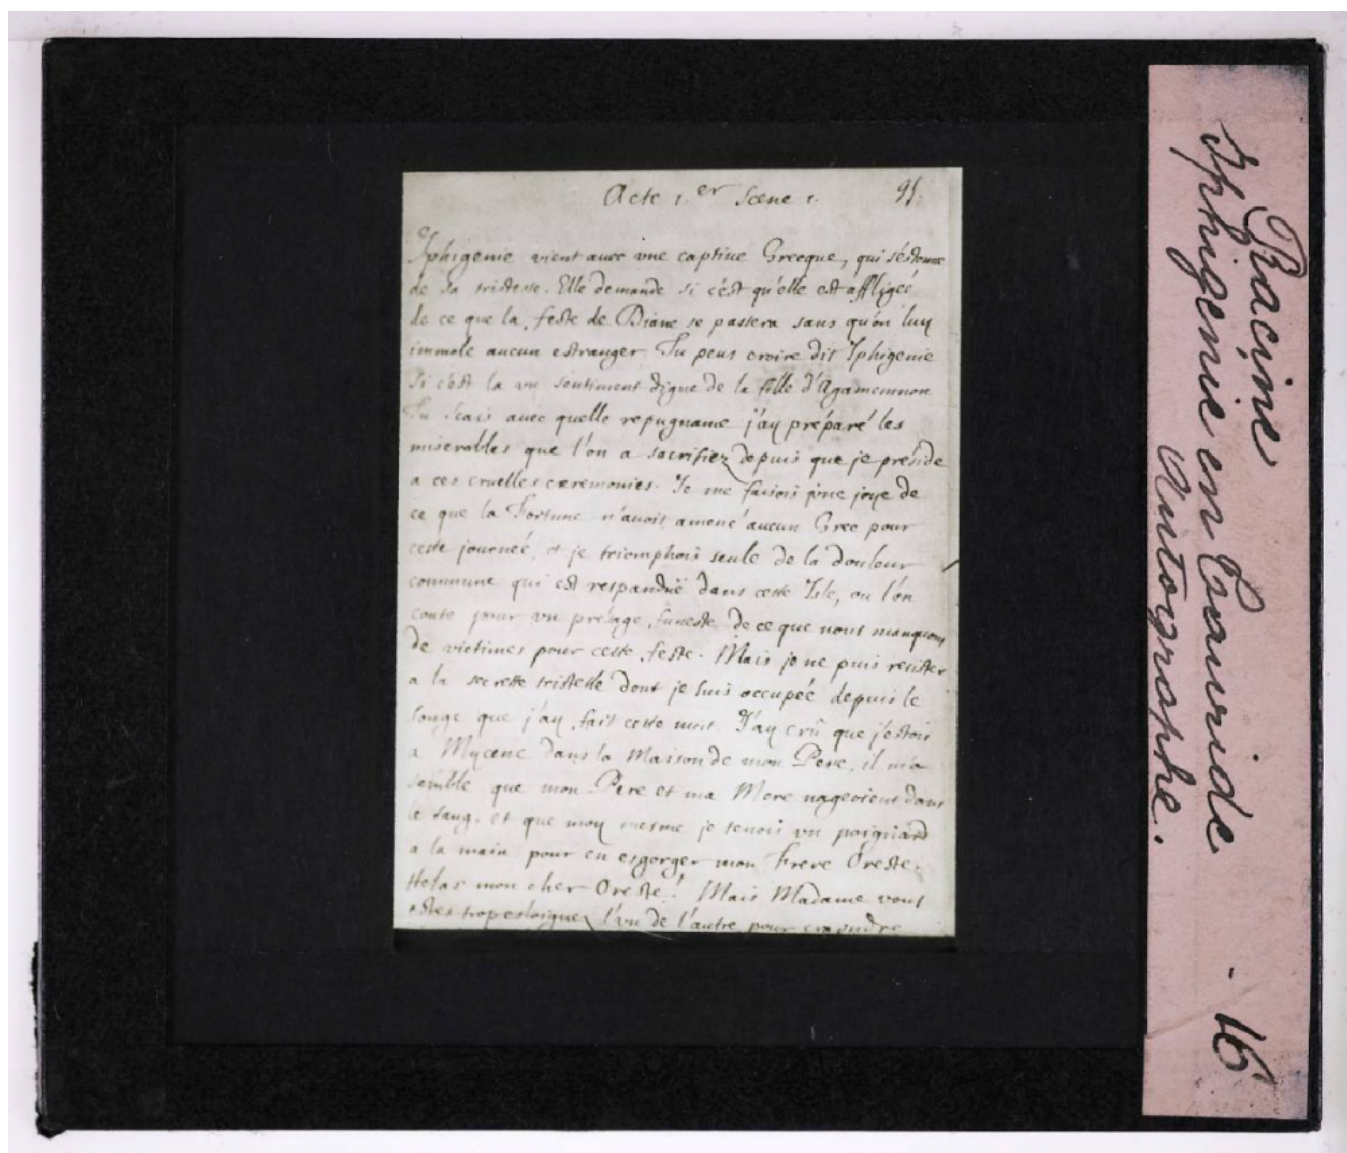 Acte 1.er Scene 1. 95.
Iphigenie vient avec vne captive Grecque, qui s'estonne
de sa tristesse. Elle demande si c'est qu'elle est affligée
de ce que la feste de Diane se passera sans qu'on luy
immole aucun estranger. Tu peus croire dit Iphigenie
si c'est la vn sentiment digne de la fille d'Agamemnon
Tu scais avec quelle repugnance j'ay préparé les
miserables que l'on a sacrifiez depuis que je préside
a ces cruelles ceremonies. Je me faisois vne joye de
ce que la Fortune n'auoit amené aucun Grec pour
cette journée, et je triomphois seule de la douleur
commune qui est respanduë dans cette Isle, ou l'on
conte pour vn présage funeste de ce que nous manquons
de victimes pour cette feste. Mais je ne puis resister
a la secrette tristesse dont je suis occupée depuis le
songe que j'ay fait cette nuit. J'ay crû que j'estois
a Mycene dans la Maison de mon Pere, il m'a
semblé que mon Pere et ma Mere nageoient dans
le sang, et que moy mesme je tenois vn poignard
a la main pour en esgorger mon Frere Oreste.
Helas mon cher Oreste! Mais Madame vous
estes trop esloignez l'vn de l'autre pour craindre
Racine
Iphigenie en Tauride
Autographe.
- 16